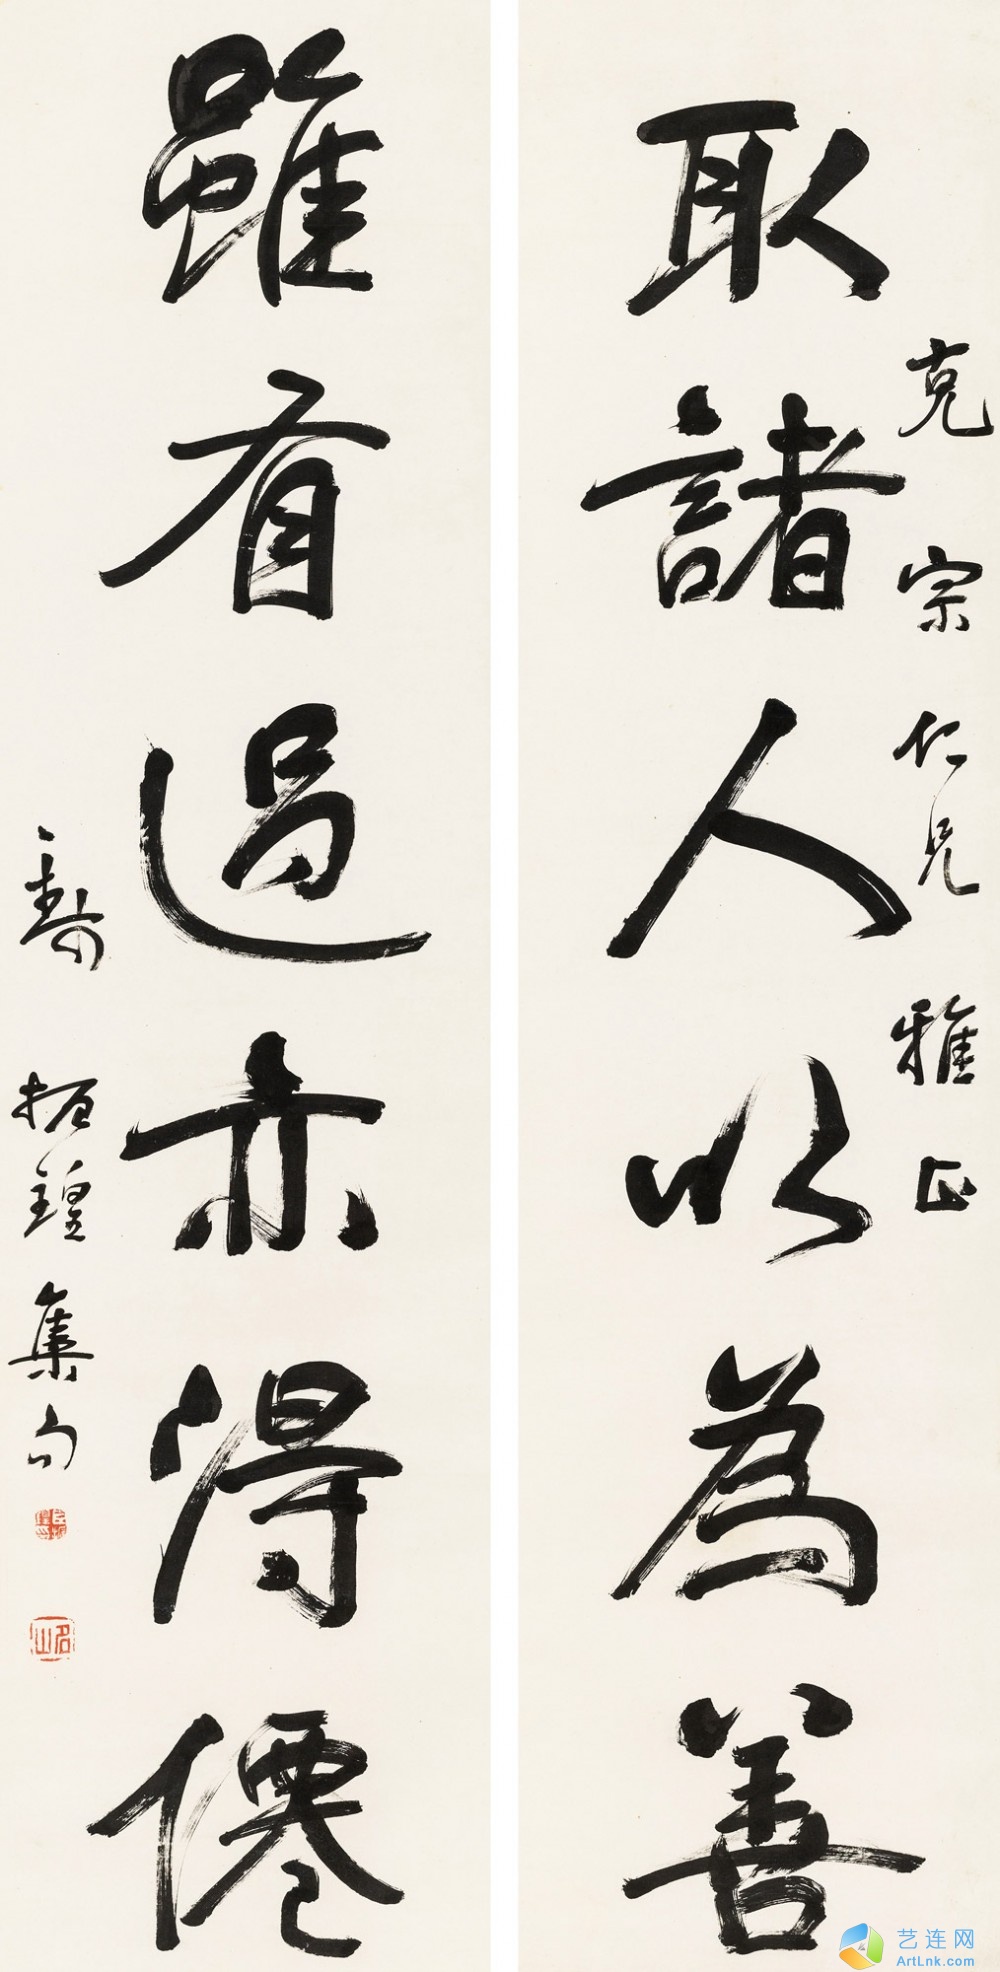 取諸人以為善
克宗仁兄雅正
雖有過亦得僊
振鍠集句
名山
艺连网
ArtLnk.com